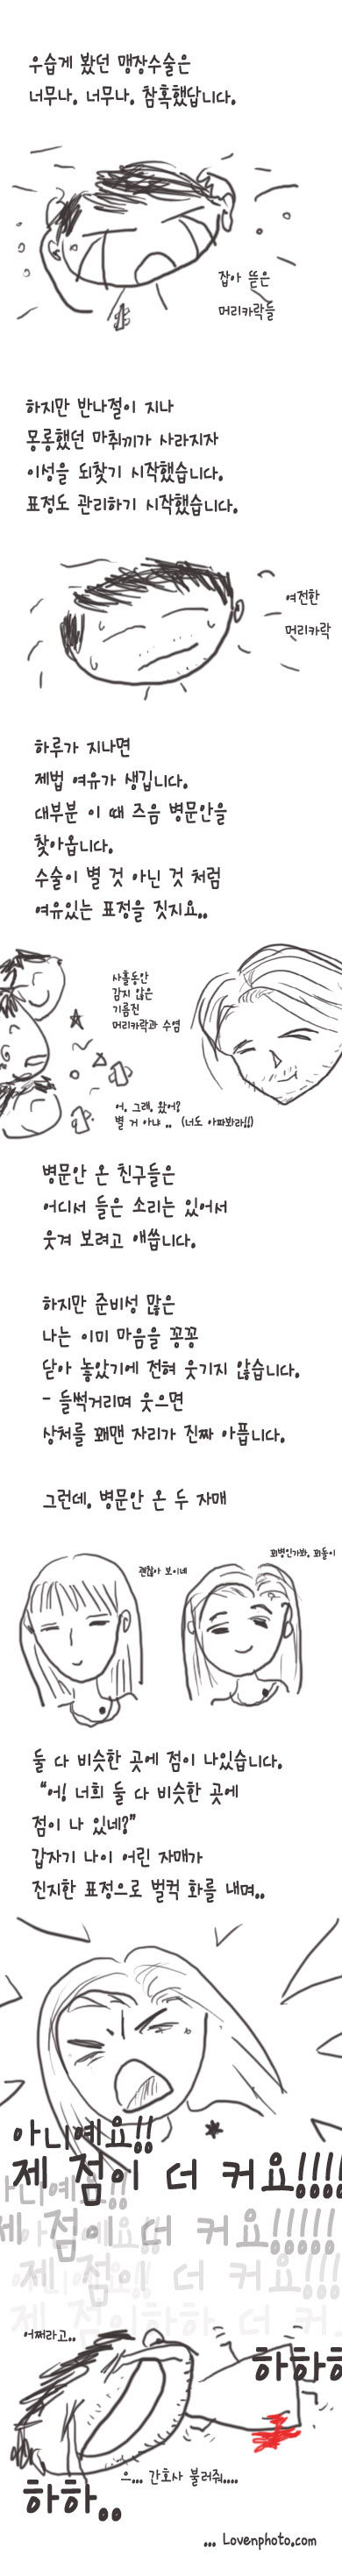 우습게 봤던 맹장수술은
너무나. 너무나. 참혹했답니다.
잡아 뜯은
머리카락들
하지만 반나절이 지나
몽롱했던 마취끼가 사라지자
이성을 되찾기 시작했습니다.
표정도 관리하기 시작했습니다.
여전한
머리카락
하루가 지나면
제법 여유가 생깁니다.
대부분 이 때 즈음 병문안을
찾아옵니다.
수술이 별 것 아닌 것 처럼
여유있는 표정을 짓지요..
사흘동안
감지 않은
기름진
머리카락과 수염
어. 그래. 왔어?
별 거 아냐 .. (너도 아파봐라!!)
병문안 온 친구들은
어디서 들은 소리는 있어서
웃겨 보려고 애씁니다.
하지만 준비성 많은
나는 이미 마음을 꽁꽁
닫아 놓았기에 전혀 웃기지 않습니다.
- 들썩거리며 웃으면
상처를 꿰맨 자리가 진짜 아픕니다.
그런데. 병문안 온 두 자매
괜찮아 보이네
꾀병인가봐. 꾀돌이
둘 다 비슷한 곳에 점이 나있습니다.
“어! 너희 둘 다 비슷한 곳에
점이 나 있네?”
갑자기 나이 어린 자매가
진지한 표정으로 벌컥 화를 내며..
아니예요!!
제 점이 더 커요!!!!
아니예요!!
제 점이 더 커요!!!!!
아니예요!!
제 점이 더 커요!!!
제 점이하하 더 커
어쩌라고..
하하하
으... 간호사 불러줘....
하하..
... Lovenphoto.com